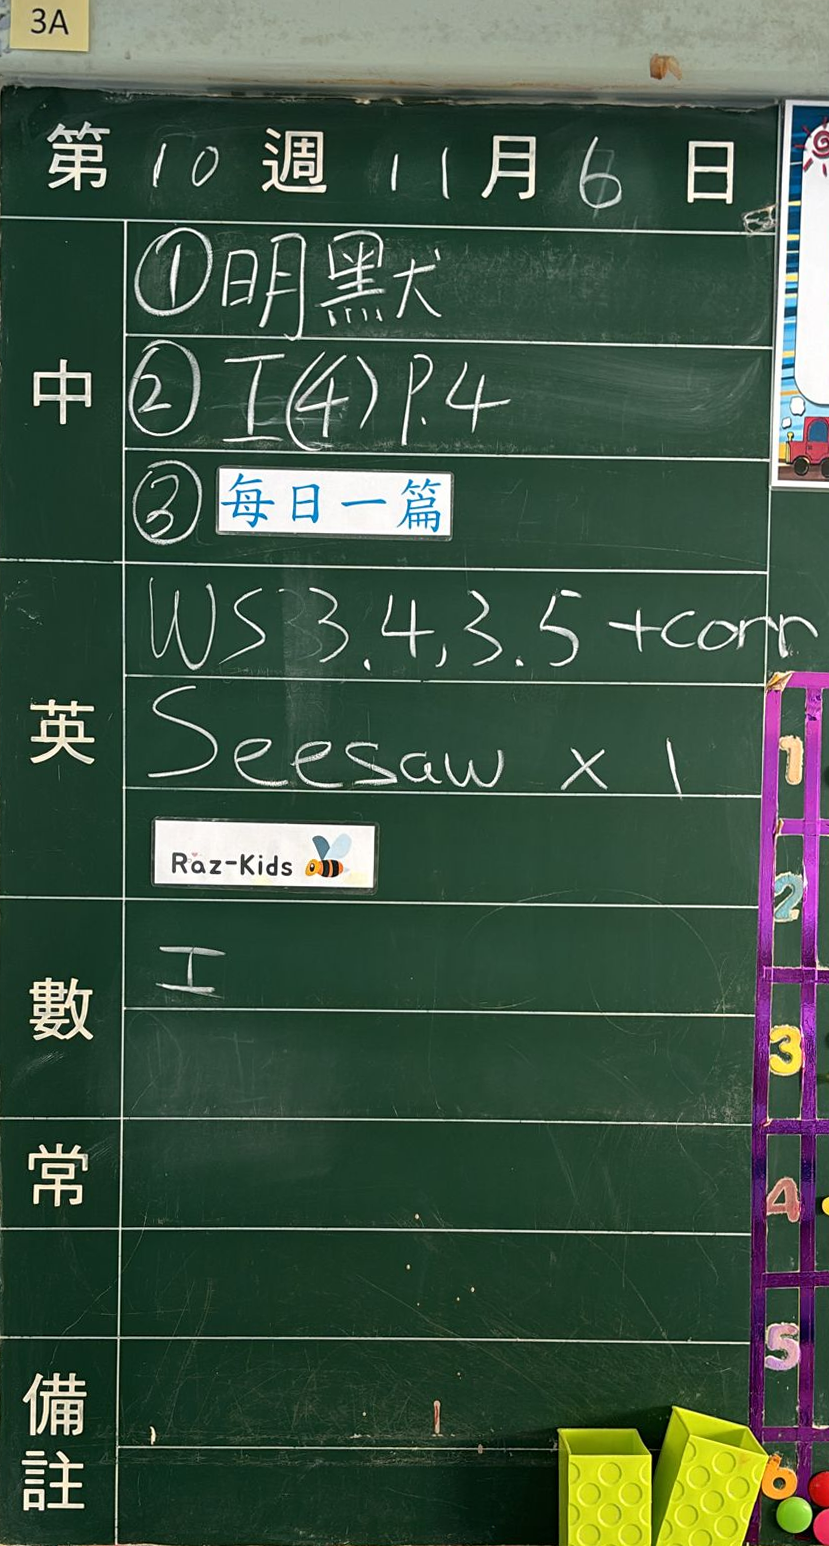 3A
第 10 週 11 月 6 日
中
①明默
②工(4)P.4
③每日一篇
英
WS 3.4,3.5 +corr
Seesaw x 1
Raz-Kids
數
工
常
備註
1
2
3
4
5
6